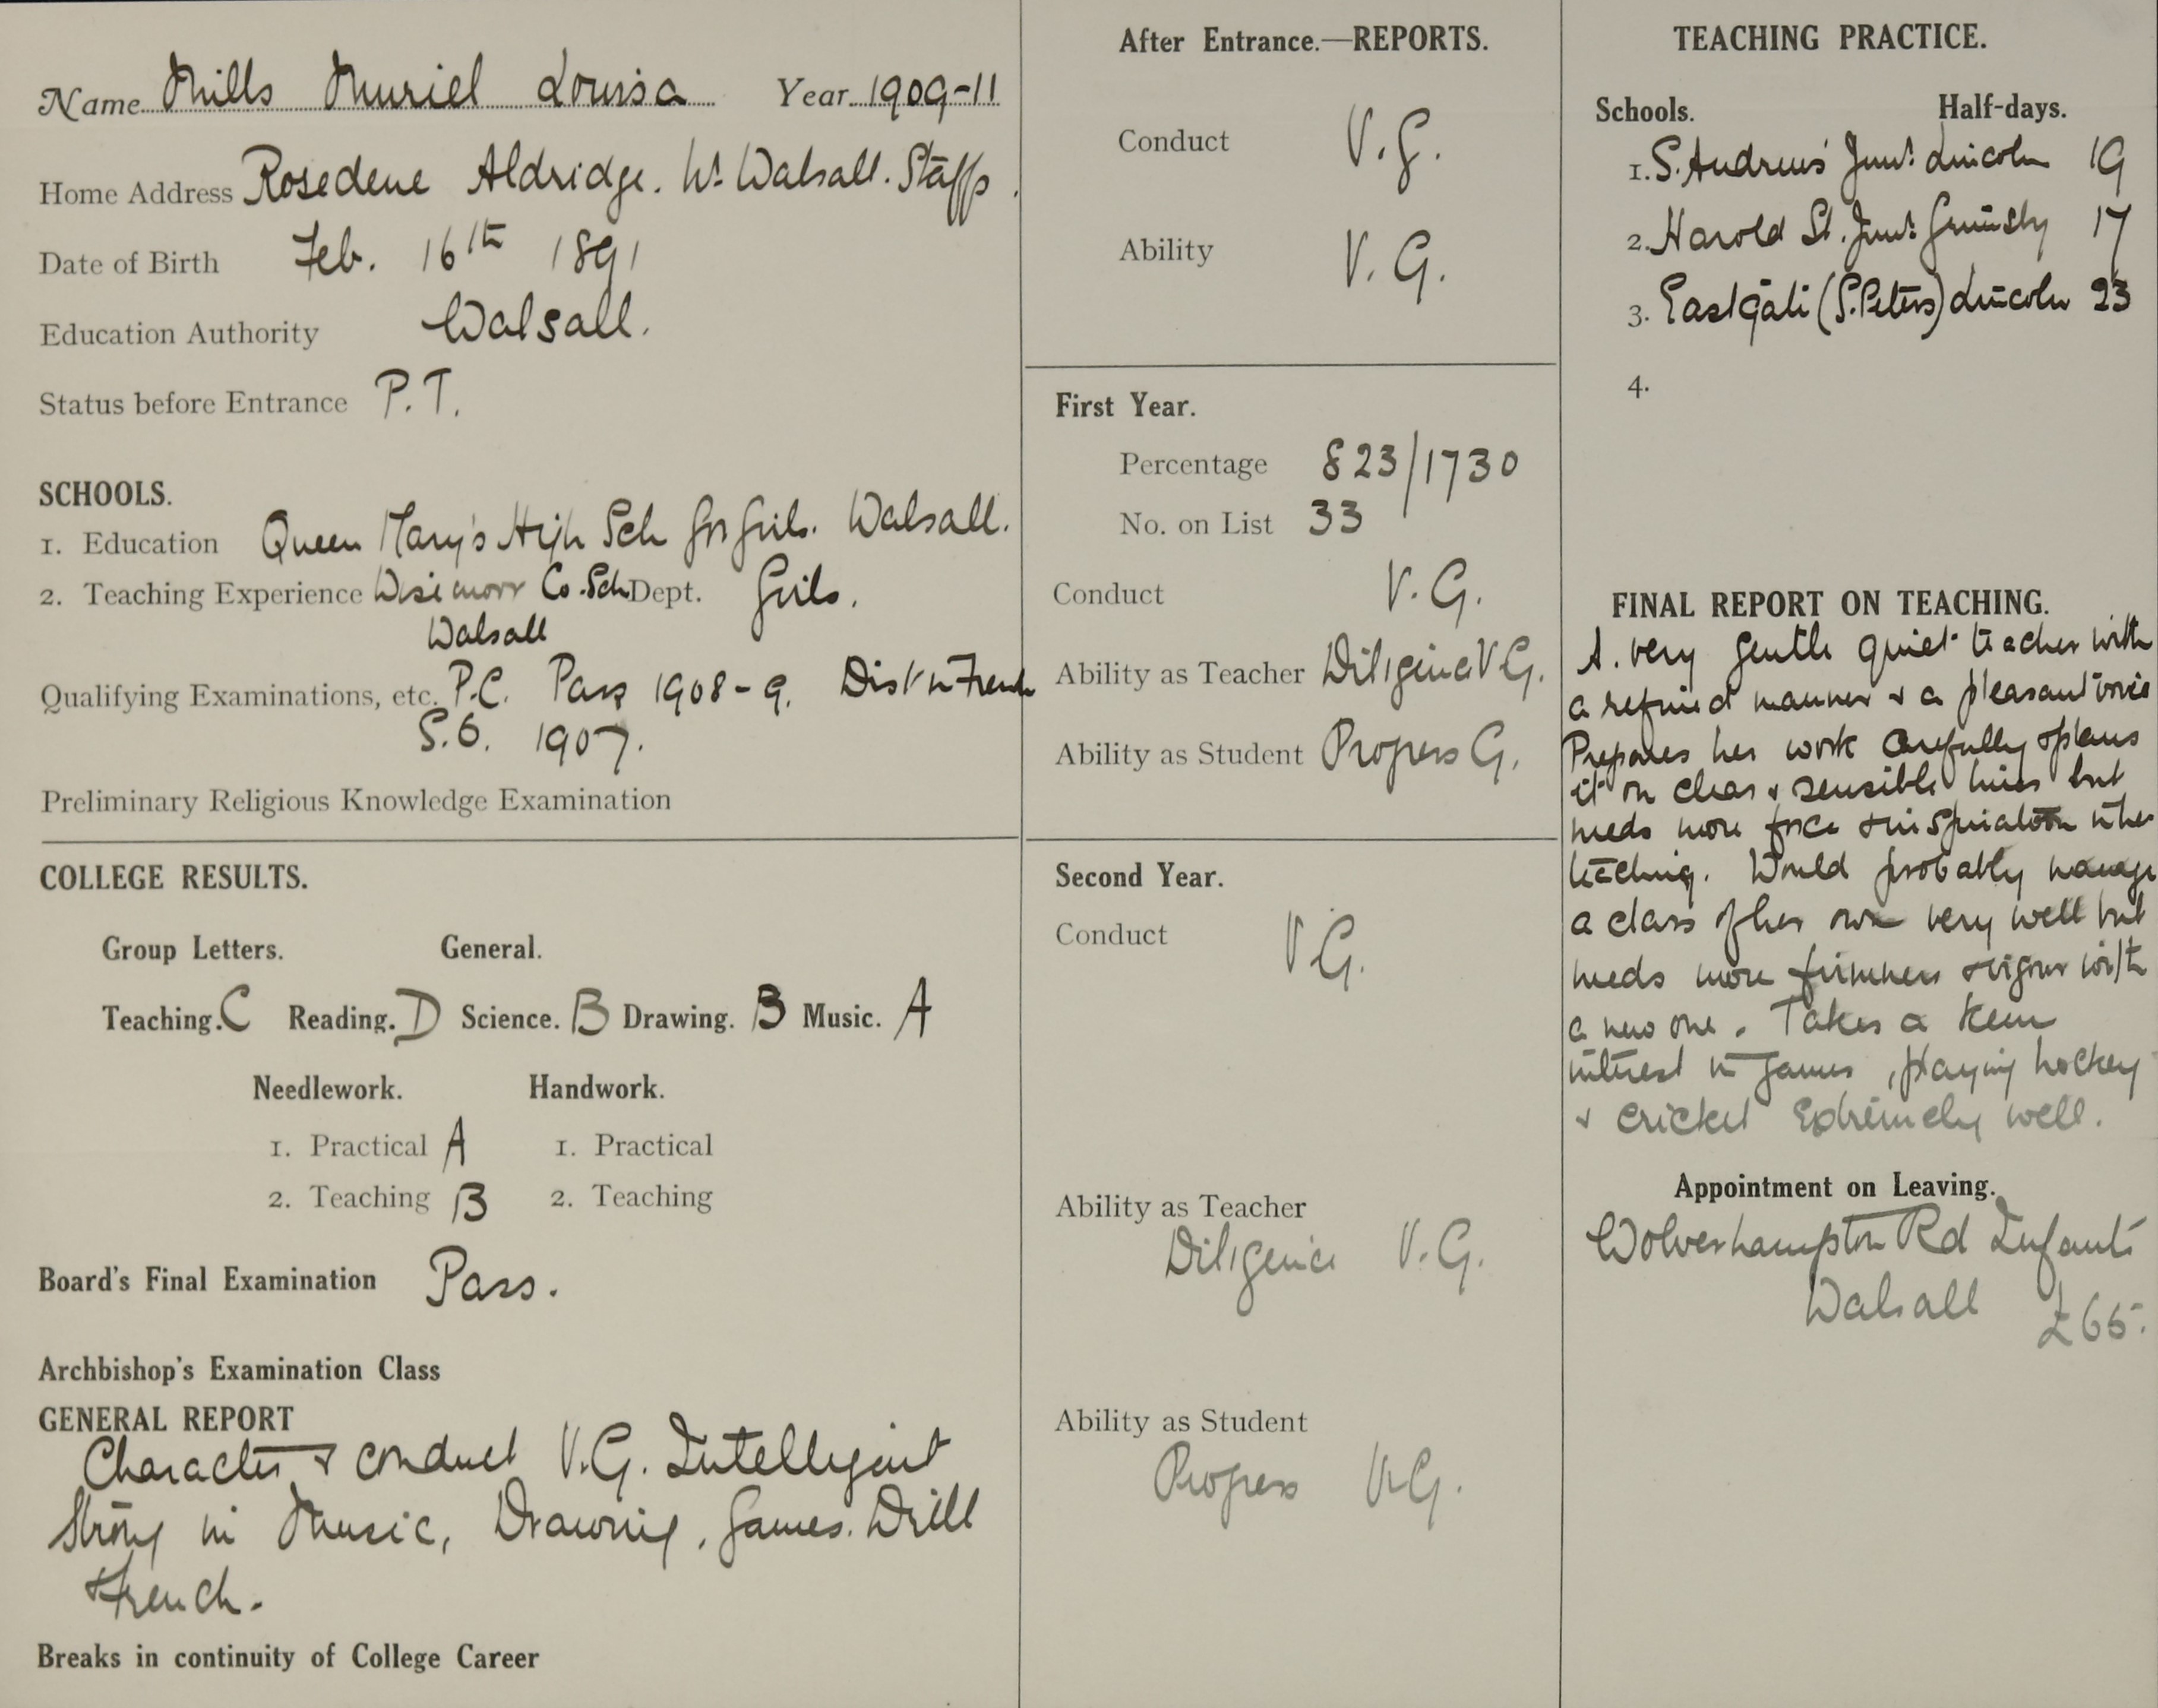 Name Mills Muriel Louisa Year 1909-11
Home Address Rosedene Aldridge. Nr. Walsall. Staffs.
Date of Birth Feb. 16th 1891
Education Authority Walsall.
Status before Entrance P.T.
SCHOOLS.
1. Education Queen Mary's High Sch for Girls. Walsall.
2. Teaching Experience Wisemore Co. Sch Dept. Girls.
Walsall
Qualifying Examinations, etc. P.C. Pass 1908-9. Distn French
S.6. 1907.
Preliminary Religious Knowledge Examination
COLLEGE RESULTS.
Group Letters. General.
Teaching. C Reading. D Science. B Drawing. B Music. A
Needlework. Handwork.
1. Practical A 1. Practical
2. Teaching B 2. Teaching
Board's Final Examination Pass.
Archbishop's Examination Class
GENERAL REPORT
Character & conduct V.G. Intelligent
Strong in Music, Drawing, Games. Drill
& French.
Breaks in continuity of College Career
After Entrance.—REPORTS.
Conduct V.G.
Ability V.G.
First Year.
Percentage 823/1730
No. on List 33
Conduct V.G.
Ability as Teacher Diligence V.G.
Ability as Student Progress G.
Second Year.
Conduct V.G.
Ability as Teacher
Diligence V.G.
Ability as Student
Progress V.G.
TEACHING PRACTICE.
Schools. Half-days.
1. S. Andrews' Junr. Lincoln 19
2. Harold St. Junr. Grimsby 17
3. Eastgate (S. Peters) Lincoln 23
4.
FINAL REPORT ON TEACHING.
A very gentle quiet teacher with
a refined manner & a pleasant voice
Prepares her work carefully & plans
it on clear & sensible lines but
needs more force & inspiration in her
teaching. Would probably manage
a class of her own very well but
needs more firmness & vigour with
a new one. Takes a keen
interest in games, playing hockey
& cricket extremely well.
Appointment on Leaving.
Wolverhampton Rd Infants
Walsall £65.